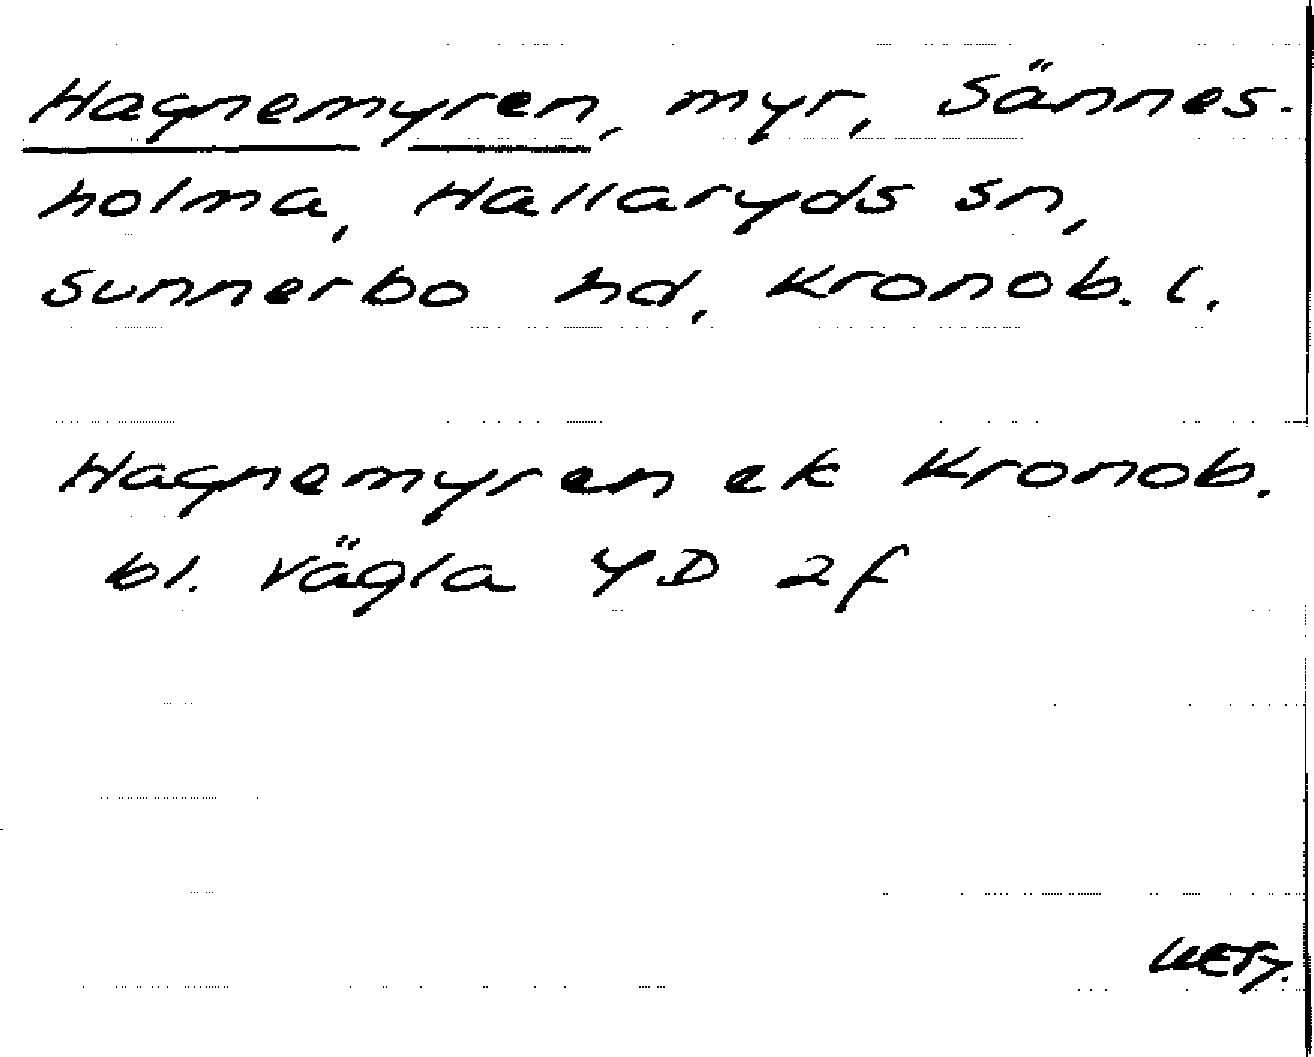 Hagnemyren, myr, Sännes-
holma, Hallaryds sn,
Sunnerbo hd, Kronob. l.
Hagnemyren ek Kronob.
bl. Vägla 4D 2f